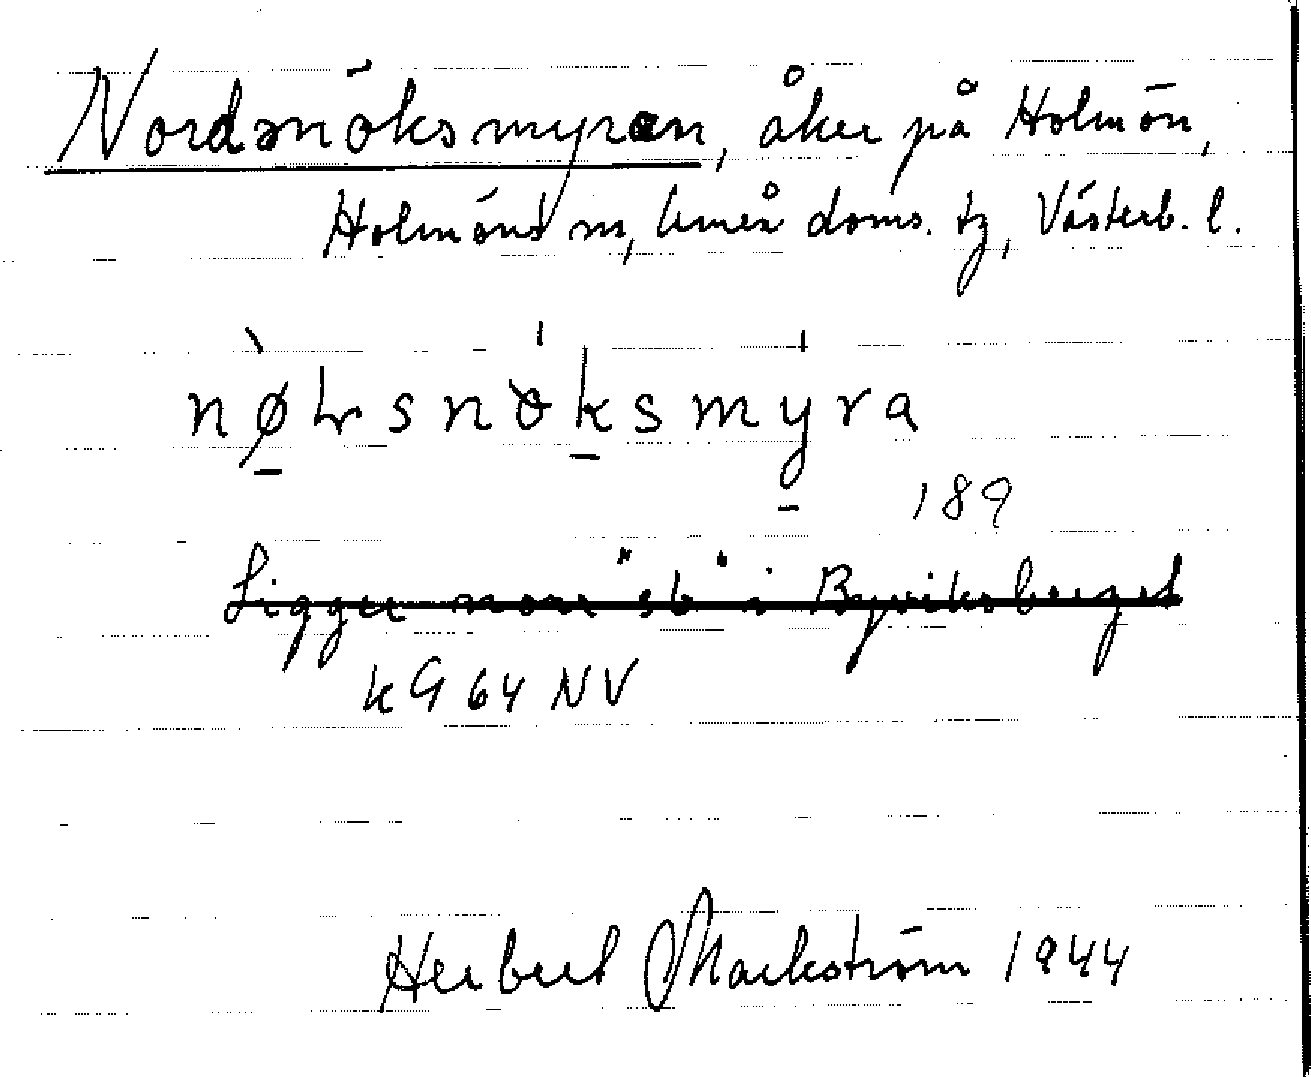 Nordsnöksmyran, åker på Holmön,
Holmöns sn, Umeå doms. tg, Västerb. l.
nørsnöksmyra
189
Ligger norr i Byviksberget
kG 64 NV
Herbert Markström 1944